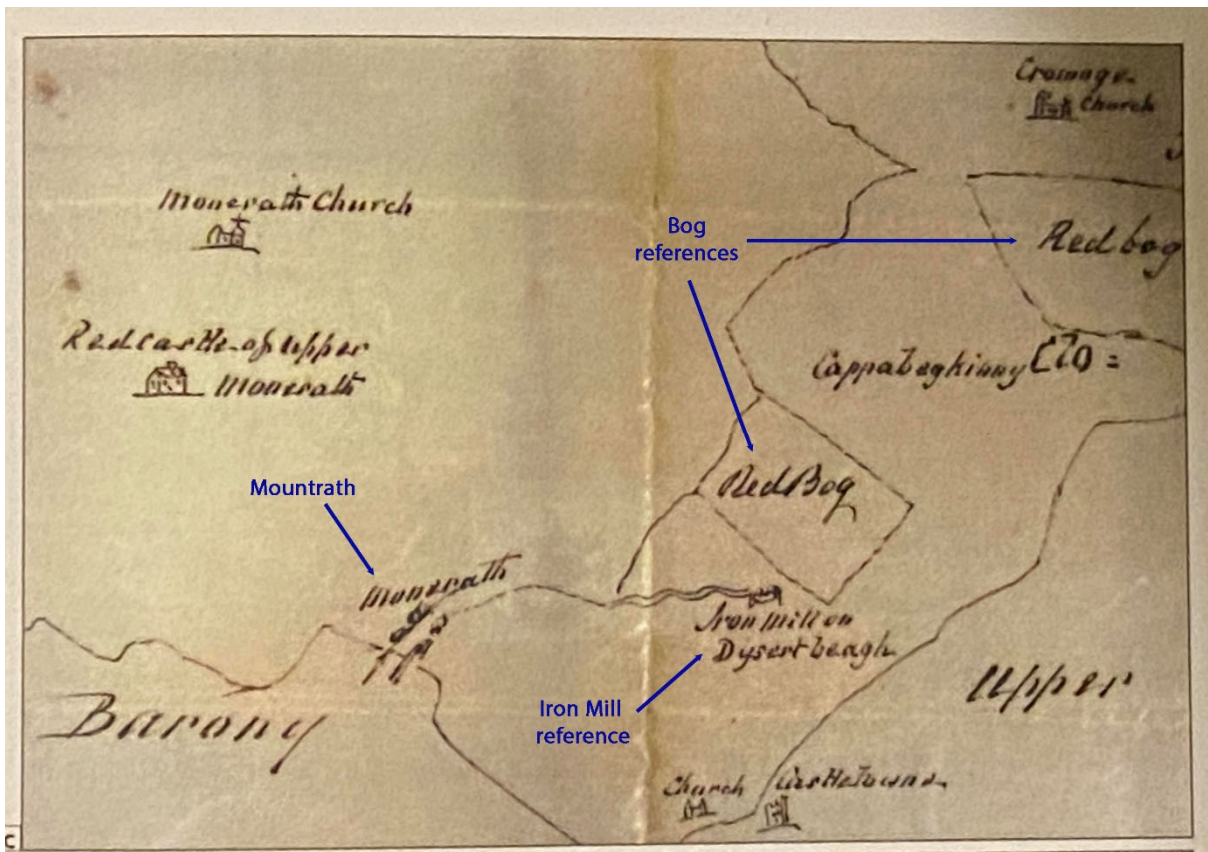 Cromoge
Church
Monerath Church
Bog
references
Red bog
Redcastle of upper
Monerath
Cappabegkinny
Mountrath
Red Bog
Monerath
Iron Mill on
Dysertbeagh
Upper
Iron Mill
reference
Barony
Church Castletowne
C